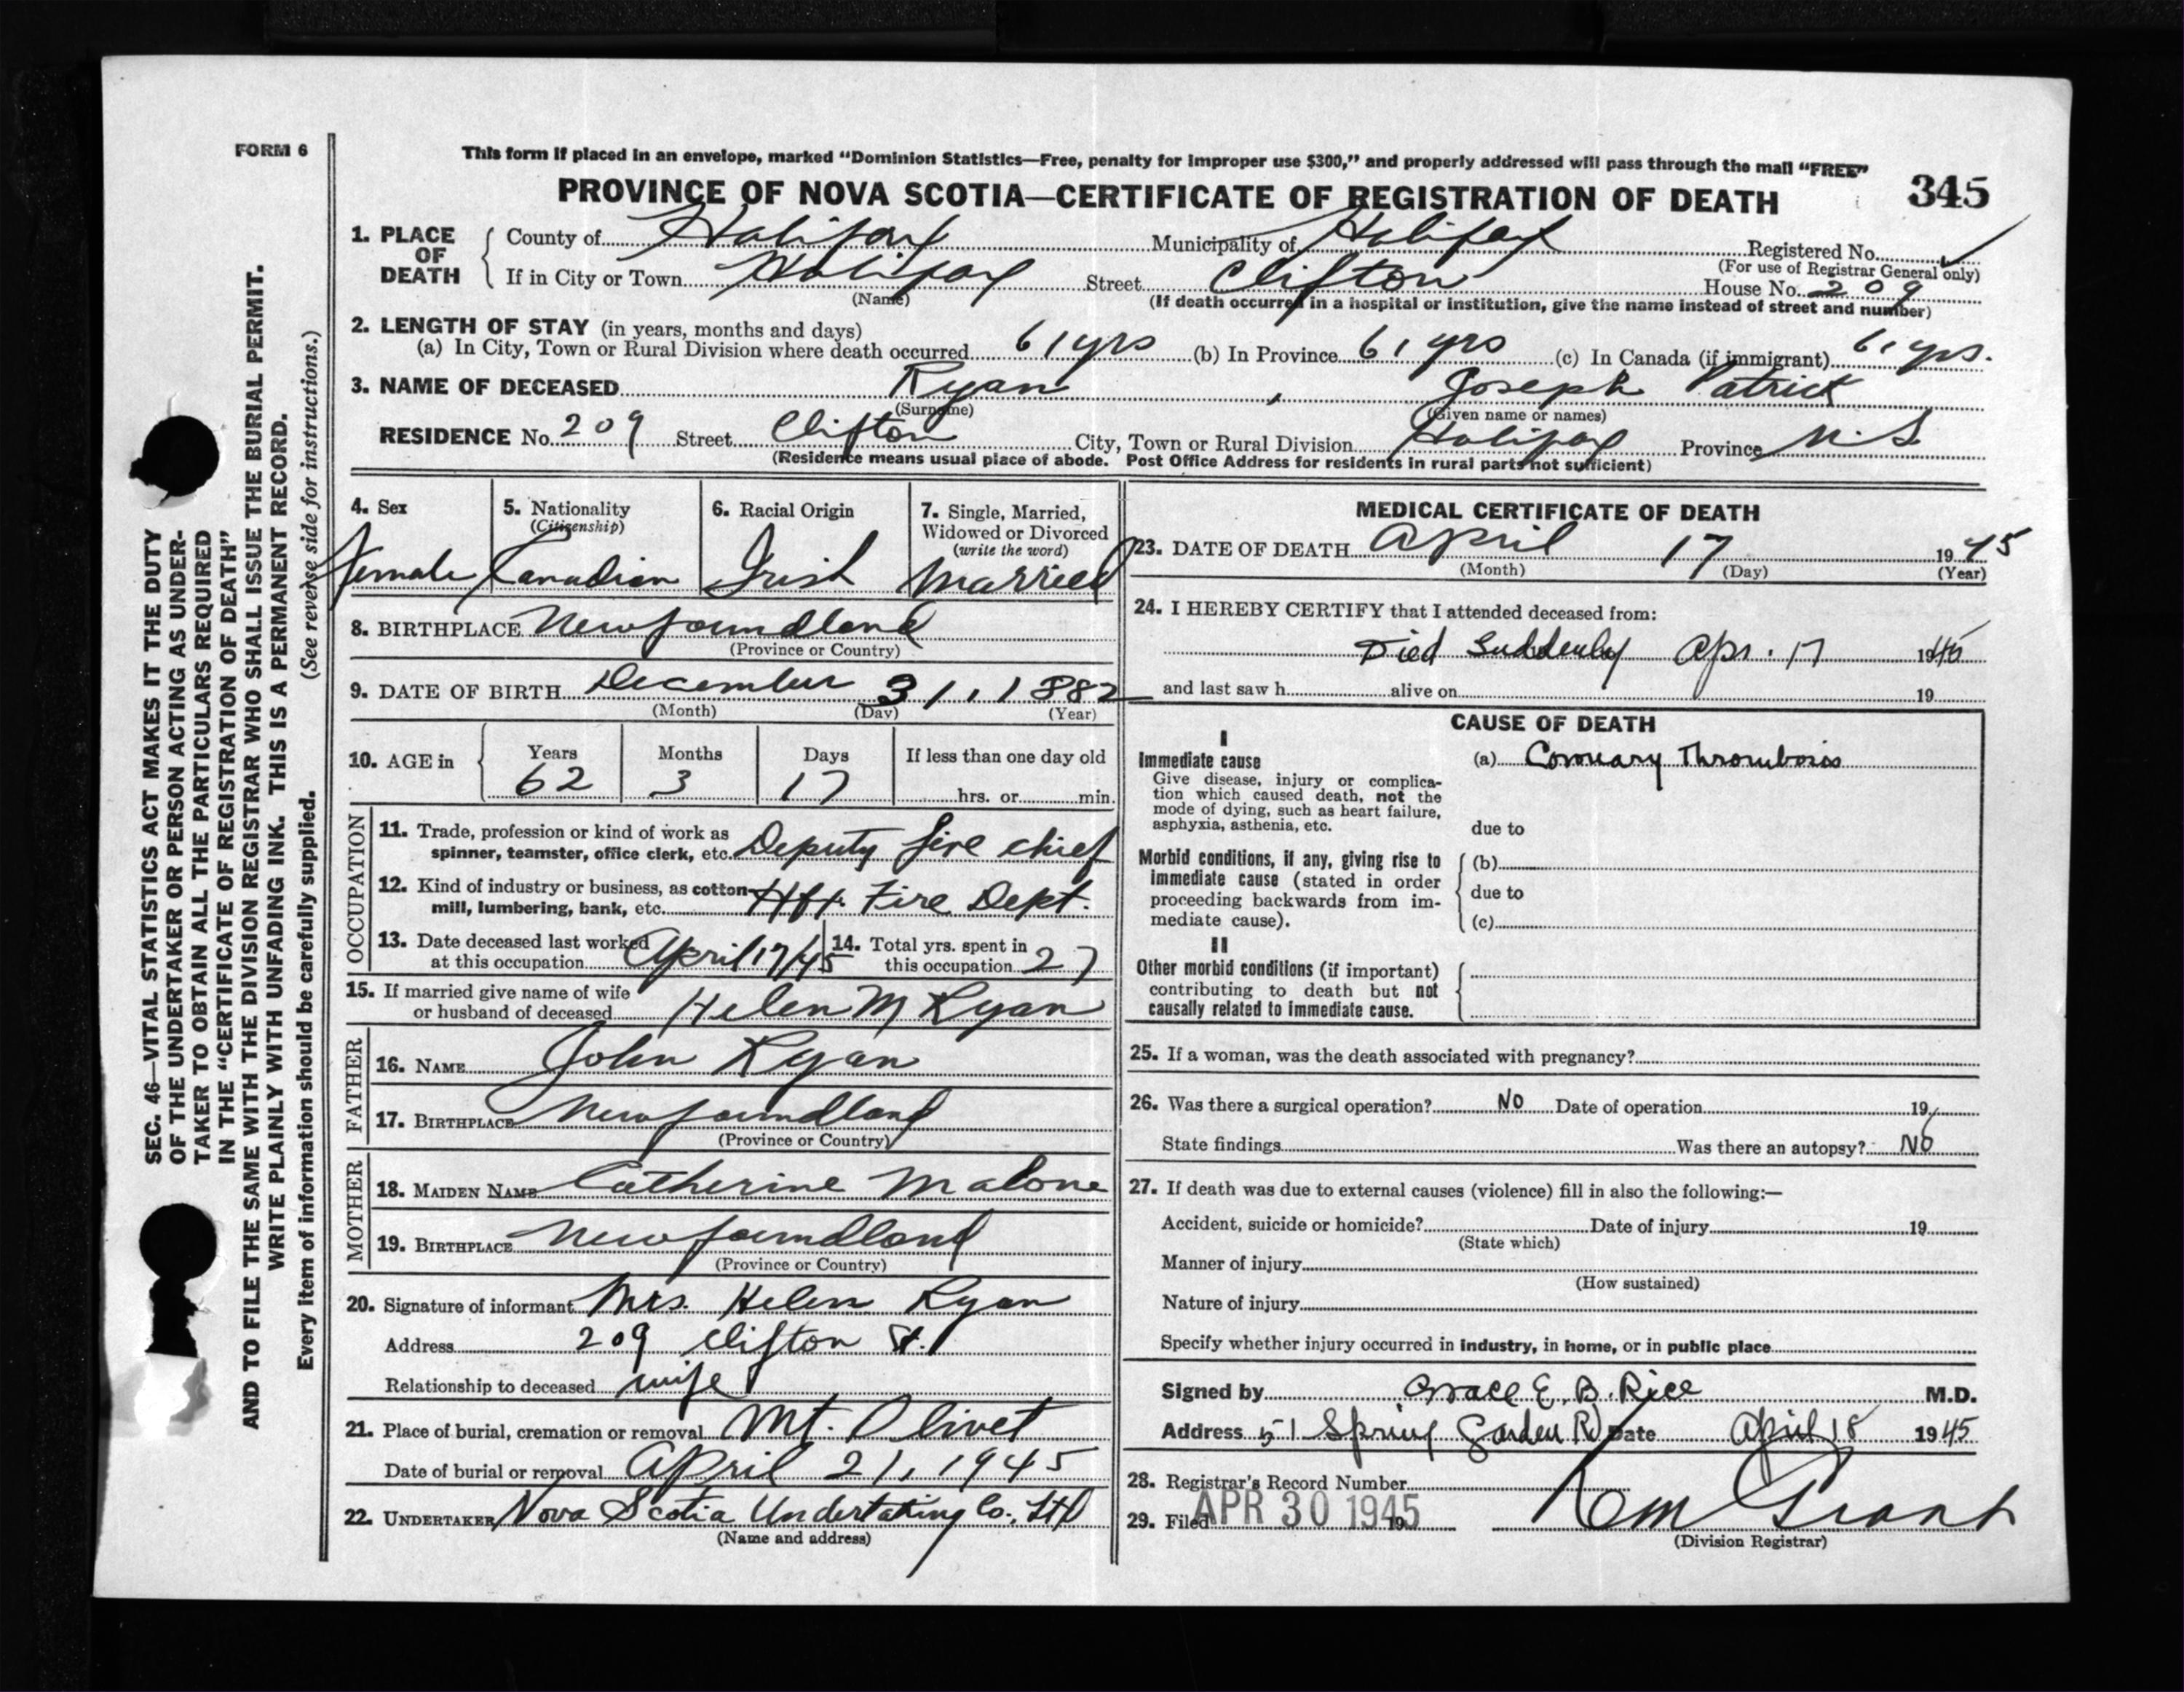 FORM 6
This form if placed in an envelope, marked “Dominion Statistics—Free, penalty for improper use $300,” and properly addressed will pass through the mail “FREE”
PROVINCE OF NOVA SCOTIA—CERTIFICATE OF REGISTRATION OF DEATH 345
1. PLACE OF DEATH
County of Halifax Municipality of Halifax Registered No.
(For use of Registrar General only)
If in City or Town Halifax Street Clifton House No. 209
(Name) (If death occurred in a hospital or institution, give the name instead of street and number)
2. LENGTH OF STAY (in years, months and days)
(a) In City, Town or Rural Division where death occurred 61 yrs (b) In Province 61 yrs (c) In Canada (if immigrant) 61 yrs.
3. NAME OF DECEASED Ryan , Joseph Patrick
(Surname) (Given name or names)
RESIDENCE No. 209 Street Clifton City, Town or Rural Division Halifax Province N.S
(Residence means usual place of abode. Post Office Address for residents in rural parts not sufficient)
4. Sex
female
5. Nationality
(Citizenship)
Canadian
6. Racial Origin
Irish
7. Single, Married,
Widowed or Divorced
(write the word)
Married
8. BIRTHPLACE Newfoundland
(Province or Country)
9. DATE OF BIRTH December 31, 1882
(Month) (Day) (Year)
10. AGE in
Years Months Days If less than one day old
62 3 17 hrs. or min.
OCCUPATION
11. Trade, profession or kind of work as
spinner, teamster, office clerk, etc. Deputy fire chief
12. Kind of industry or business, as cotton-
mill, lumbering, bank, etc. Hfx. Fire Dept.
13. Date deceased last worked
at this occupation April 17/45
14. Total yrs. spent in
this occupation 27
15. If married give name of wife
or husband of deceased Helen M Ryan
FATHER
16. NAME John Ryan
17. BIRTHPLACE Newfoundland
(Province or Country)
MOTHER
18. MAIDEN NAME Catherine Malone
19. BIRTHPLACE Newfoundland
(Province or Country)
20. Signature of informant Mrs. Helen Ryan
Address 209 Clifton St.
Relationship to deceased wife
21. Place of burial, cremation or removal Mt. Olivet
Date of burial or removal April 21, 1945
22. UNDERTAKER Nova Scotia Undertaking Co., Ltd
(Name and address)
MEDICAL CERTIFICATE OF DEATH
23. DATE OF DEATH April 17 1945
(Month) (Day) (Year)
24. I HEREBY CERTIFY that I attended deceased from:
Died Suddenly Apr. 17 1945
and last saw h alive on 19
CAUSE OF DEATH
I
Immediate cause
Give disease, injury or complica-
tion which caused death, not the
mode of dying, such as heart failure,
asphyxia, asthenia, etc.
(a) Coronary Thrombosis
due to
Morbid conditions, if any, giving rise to
immediate cause (stated in order
proceeding backwards from im-
mediate cause).
(b)
due to
(c)
II
Other morbid conditions (if important)
contributing to death but not
causally related to immediate cause.
25. If a woman, was the death associated with pregnancy?
26. Was there a surgical operation? No Date of operation 19
State findings Was there an autopsy? No
27. If death was due to external causes (violence) fill in also the following:—
Accident, suicide or homicide? Date of injury 19
(State which)
Manner of injury
(How sustained)
Nature of injury
Specify whether injury occurred in industry, in home, or in public place
Signed by Grace E. B. Rice M.D.
Address 51 Spring Garden Rd Date April 18 1945
28. Registrar's Record Number
29. Filed APR 30 1945 19
(Division Registrar)
SEC. 46—VITAL STATISTICS ACT MAKES IT THE DUTY
OF THE UNDERTAKER OR PERSON ACTING AS UNDER-
TAKER TO OBTAIN ALL THE PARTICULARS REQUIRED
IN THE “CERTIFICATE OF REGISTRATION OF DEATH”
AND TO FILE THE SAME WITH THE DIVISION REGISTRAR WHO SHALL ISSUE THE BURIAL PERMIT.
WRITE PLAINLY WITH UNFADING INK. THIS IS A PERMANENT RECORD.
Every item of information should be carefully supplied. (See reverse side for instructions.)